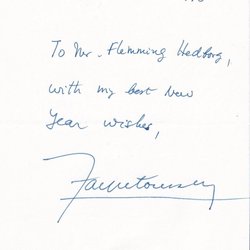 To Mr. Flemming Hedborg,
with my best New
Year wishes,